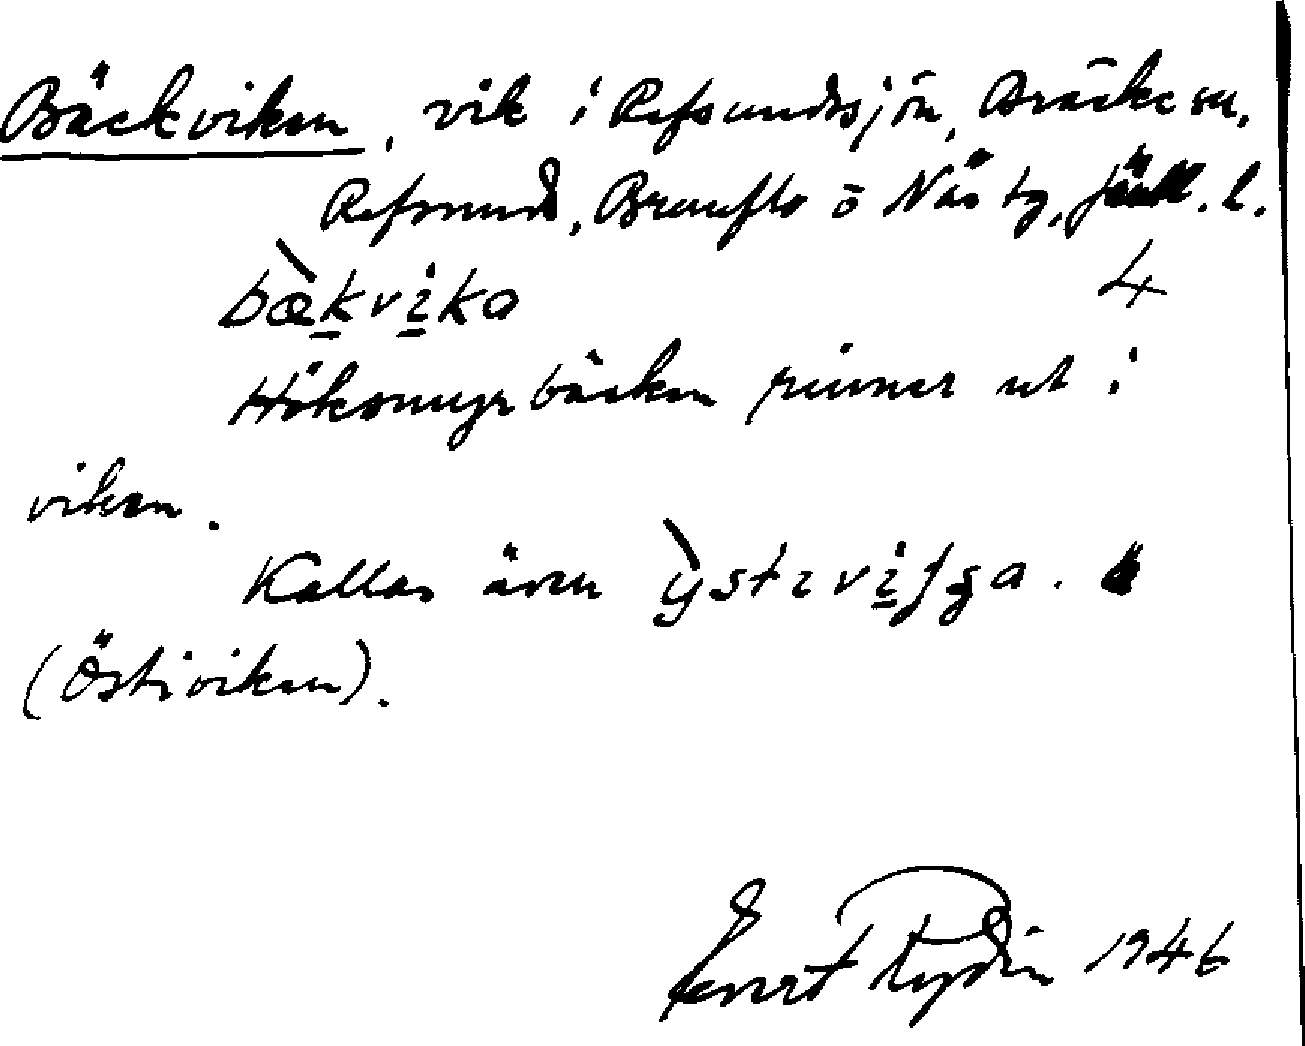 Bäckviken, vik i Refsundssjön, Bräcke sn,
Refsund, Brunflo o Näs tg, Jämtl. l.
bæ̀kvika 4
Höksmyrbäcken rinner ut i
viken.
Kallas även ỳstɩviʃʒa.
(Östiviken).
Evert Rydin 1946